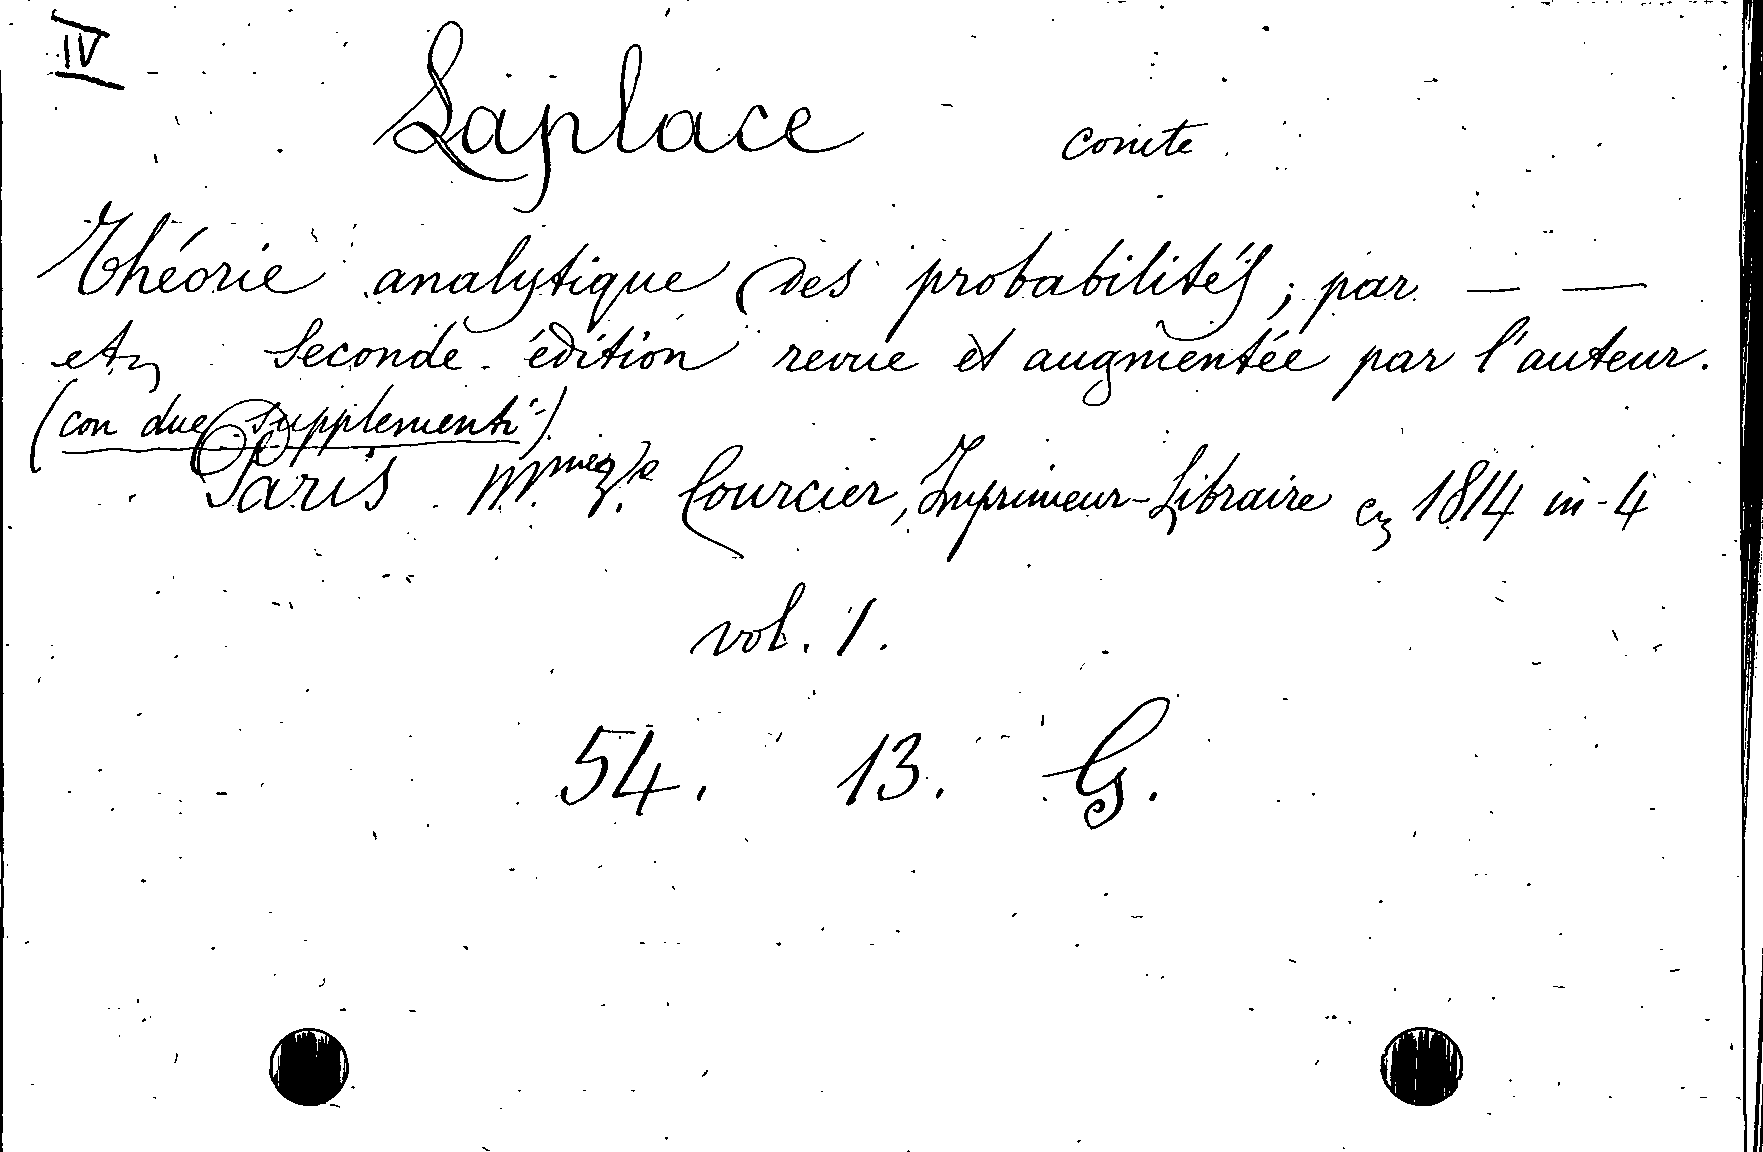 IV
Laplace comte
Théorie analytique des probabilités; par — —
etc. Seconde édition revue et augmentée par l'auteur.
(con due supplementi)
Paris Mme Ve Courcier, Imprimeur-Libraire etc 1814 in-4
vol. 1.
54. 13. G.